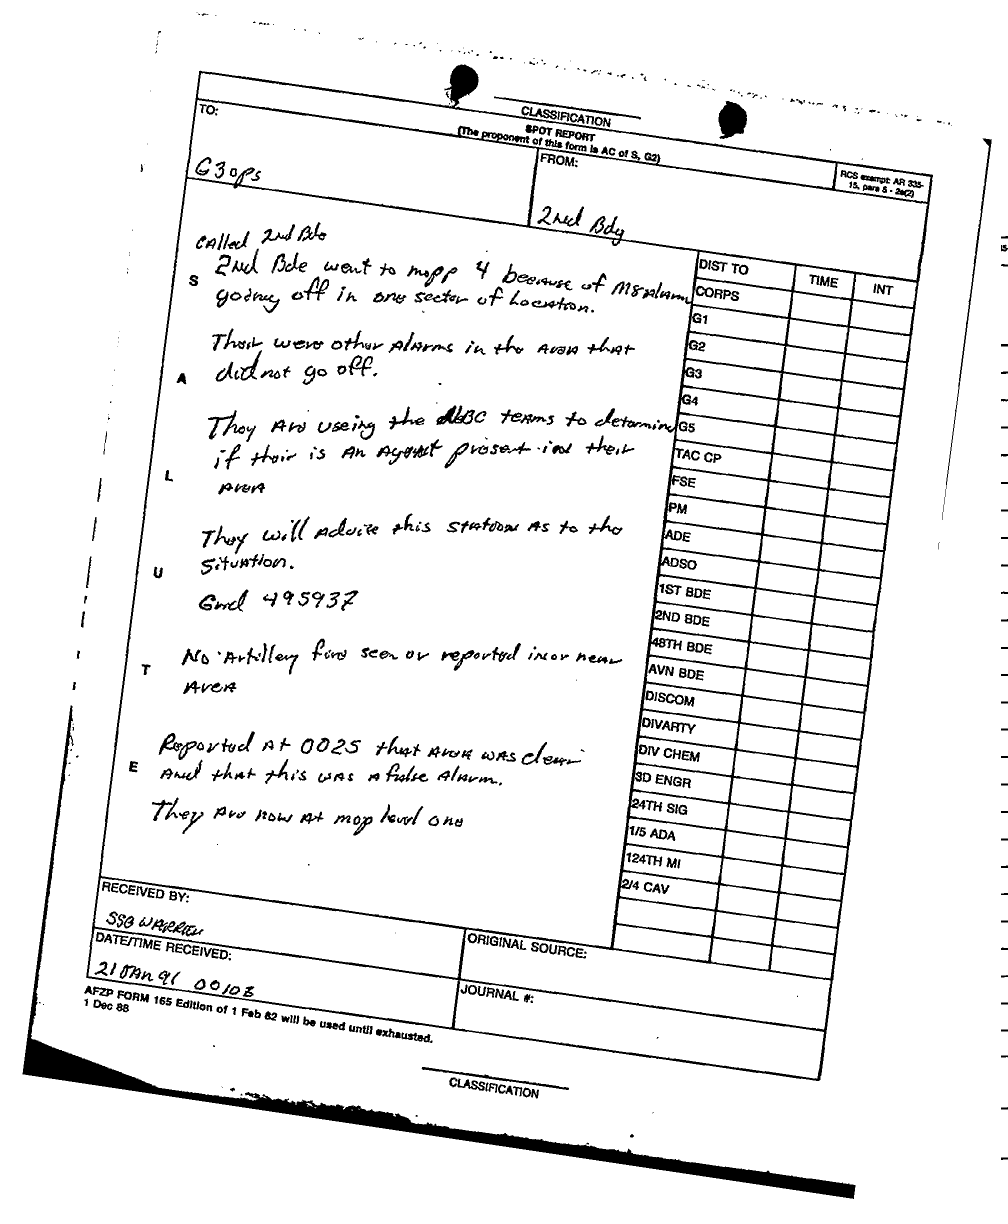 CLASSIFICATION
SPOT REPORT
(The proponent of this form is AC of S, G2)
RCS exempt: AR 335-
15, para 5 - 2e(2)
TO:
G3 ops
FROM:
2nd Bdy
Called 2nd Bde
S 2nd Bde went to mopp 4 because of M8 alarm
going off in one sector of Location.
Their were other Alarms in the Area that
A did not go off.
They Are useing the NBC teams to determine
if their is An Agent present in their
L Area
They will advise this station As to the
U Situation.
Grid 495937
T No Artillery fire seen or reported in or near
Area
Reported At 0025 that Area was clear
E And that this was A false Alarm.
They Are now At mop level one
DIST TO TIME INT
CORPS
G1
G2
G3
G4
G5
TAC CP
FSE
PM
ADE
ADSO
1ST BDE
2ND BDE
48TH BDE
AVN BDE
DISCOM
DIVARTY
DIV CHEM
3D ENGR
24TH SIG
1/5 ADA
124TH MI
2/4 CAV
RECEIVED BY:
SSG WARREN
ORIGINAL SOURCE:
DATE/TIME RECEIVED:
21 JAN 91
JOURNAL #:
AFZP FORM 165 Edition of 1 Feb 82 will be used until exhausted.
1 Dec 88
CLASSIFICATION